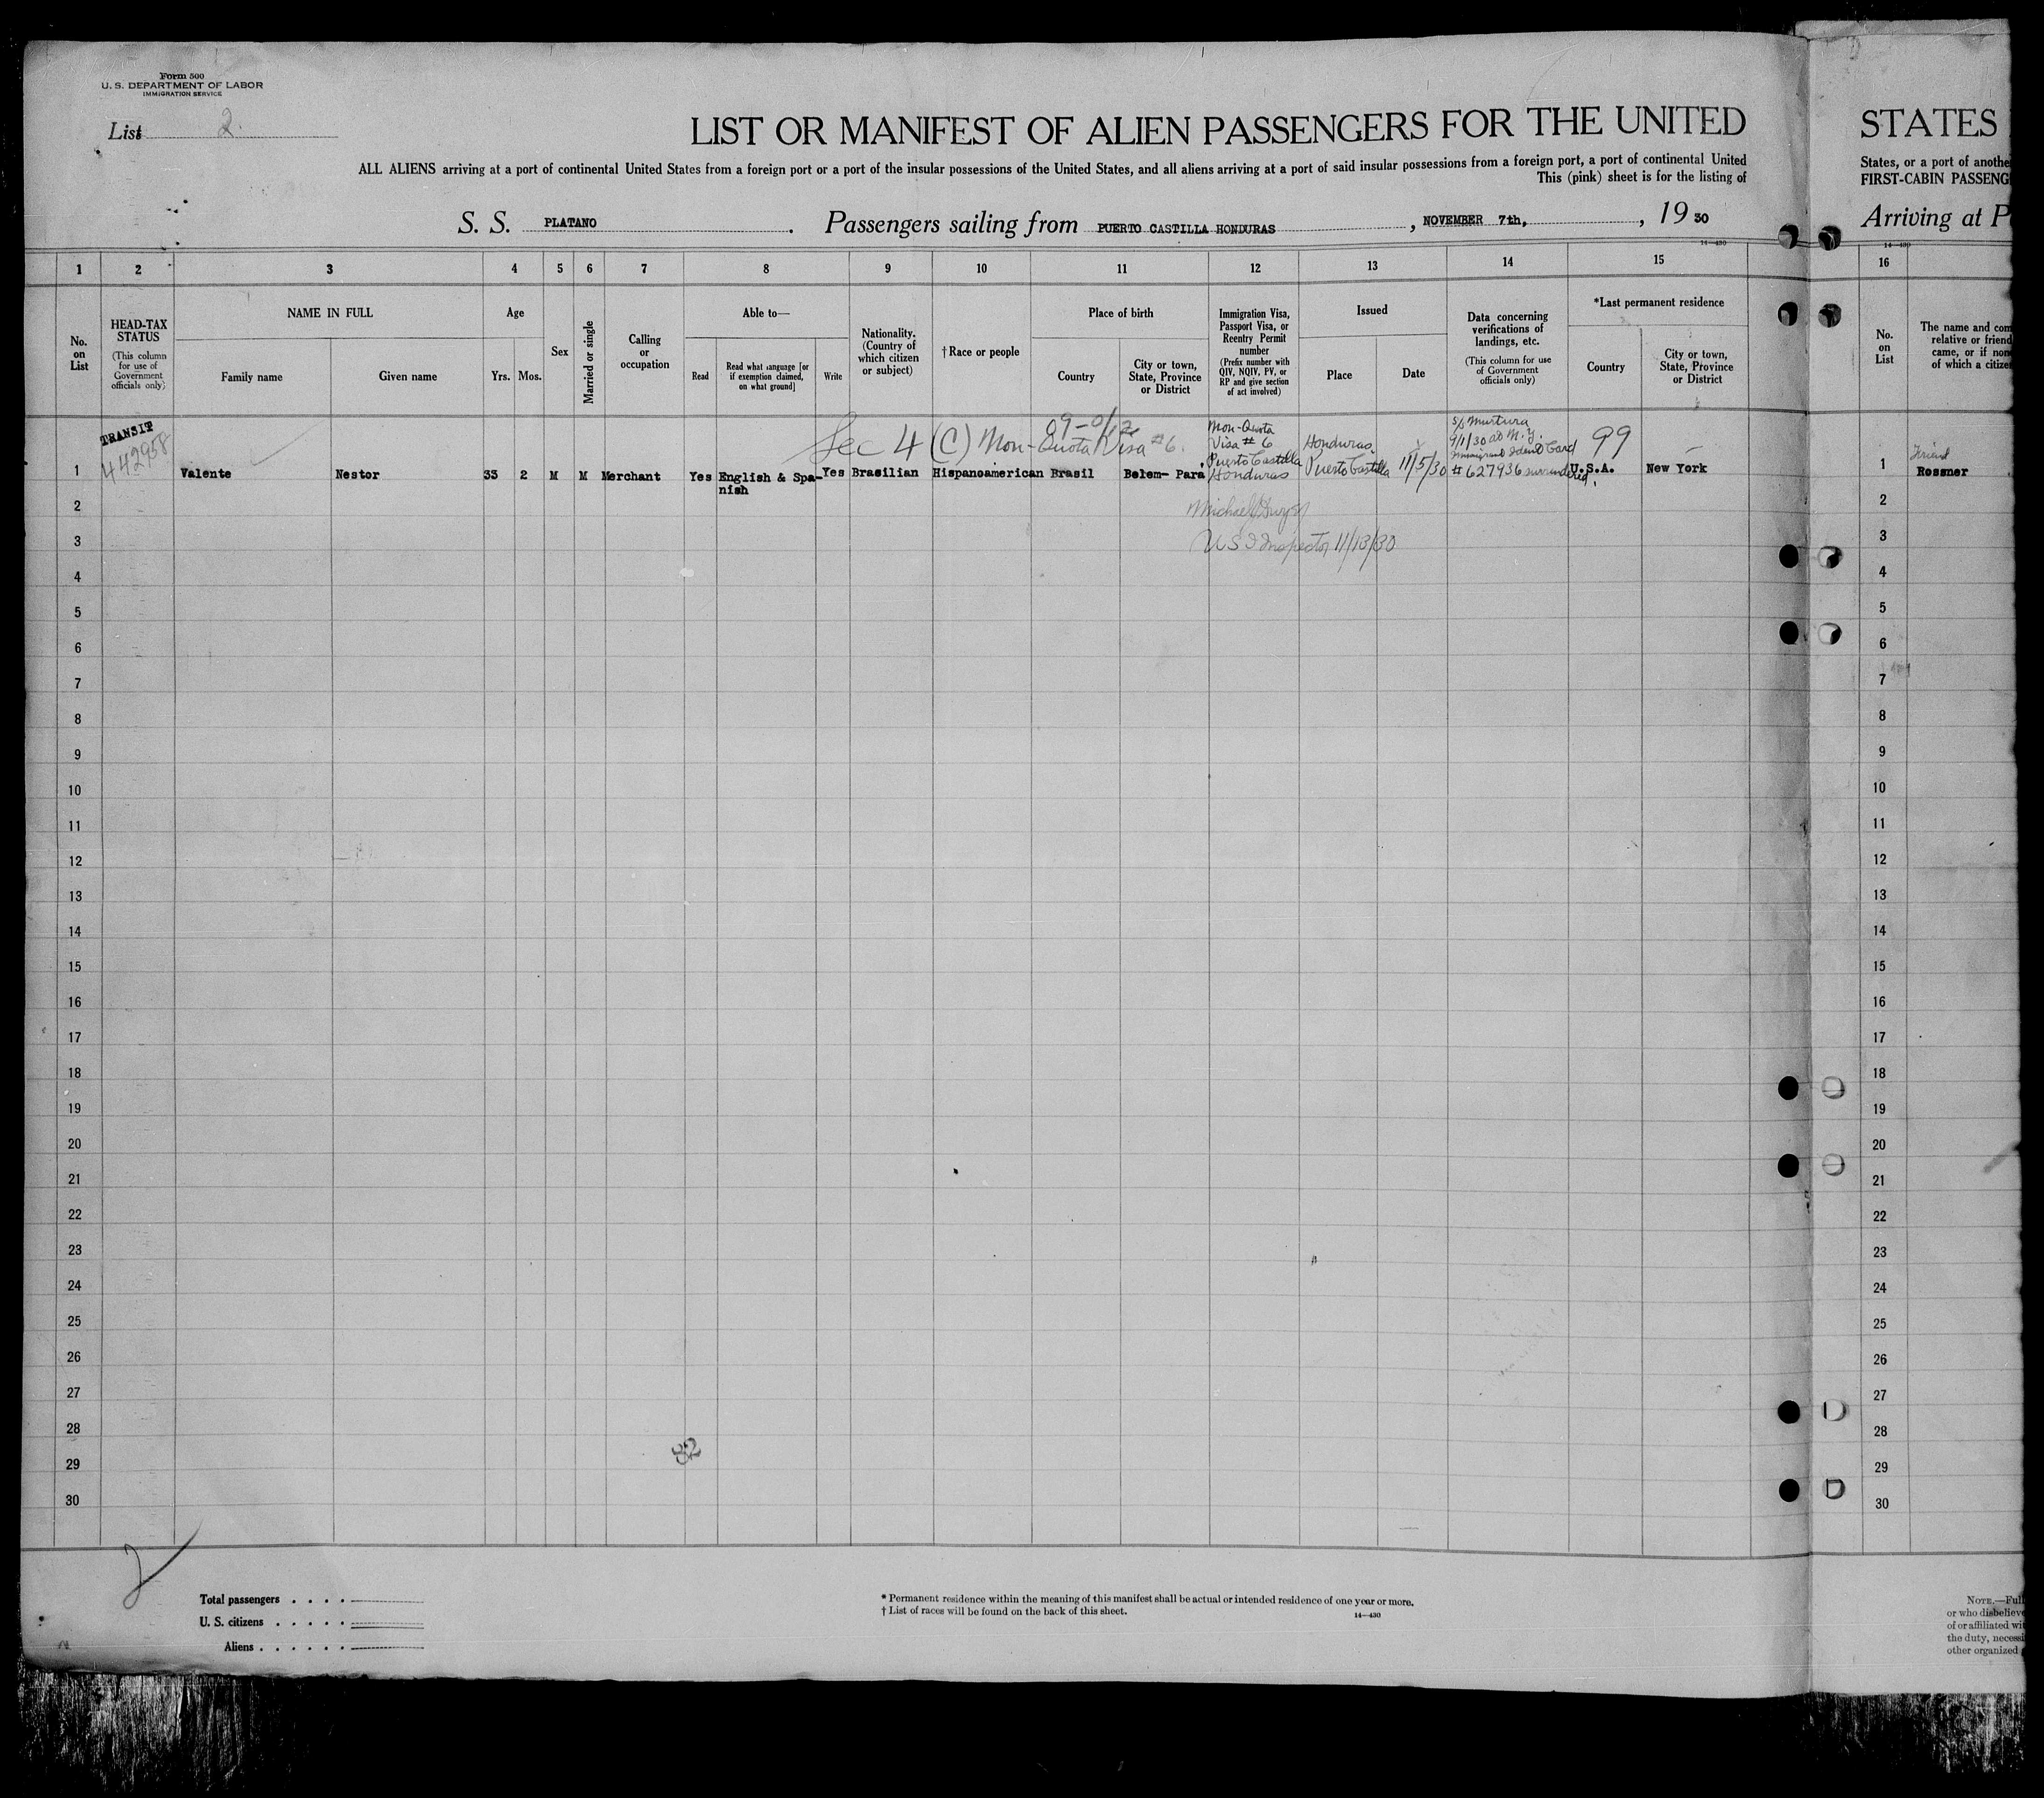 Form 500
U. S. DEPARTMENT OF LABOR
IMMIGRATION SERVICE
List 2.
LIST OR MANIFEST OF ALIEN PASSENGERS FOR THE UNITED
STATES
ALL ALIENS arriving at a port of continental United States from a foreign port or a port of the insular possessions of the United States, and all aliens arriving at a port of said insular possessions from a foreign port, a port of continental United
States, or a port of anothe
This (pink) sheet is for the listing of
FIRST-CABIN PASSENG
S. S. PLATANO. Passengers sailing from PUERTO CASTILLA HONDURAS, NOVEMBER 7th, , 19 30
Arriving at P
14—430
14—430
1 2 3 4 5 6 7 8 9 10 11 12 13 14 15 16
No. on List
HEAD-TAX STATUS
(This column for use of Government officials only)
NAME IN FULL
Family name
Given name
Age
Yrs. Mos.
Sex
Married or single
Calling or occupation
Able to—
Read
Read what language [or if exemption claimed, on what ground]
Write
Nationality. (Country of which citizen or subject)
† Race or people
Place of birth
Country
City or town, State, Province or District
Immigration Visa, Passport Visa, or Reentry Permit number
(Prefix number with QIV, NQIV, PV, or RP and give section of act involved)
Issued
Place
Date
Data concerning verifications of landings, etc.
(This column for use of Government officials only)
*Last permanent residence
Country
City or town, State, Province or District
No. on List
The name and com
relative or friend
came, or if non
of which a citize
TRANSIT
442958
Sec 4 (C) Non-Quota Visa #6.
Non-Quota
Visa # 6
Puerto Castilla
Honduras
Honduras
Puerto Castilla
11/5/30
9/1/30 at N.Y.
Immigrant Ident Card
# 627936 surrendered.
99
1 Valente Nestor 33 2 M M Merchant Yes English & Spa-
nish
Yes Brasilian Hispanoamerican Brasil Belem- Para
U.S.A. New York
1 Friend
Rossner
Michael
US I Inspector 11/13/30
2
3
4
5
6
7
8
9
10
11
12
13
14
15
16
17
18
19
20
21
22
23
24
25
26
27
28
29
30
2
3
4
5
6
7
8
9
10
11
12
13
14
15
16
17
18
19
20
21
22
23
24
25
26
27
28
29
30
32
2
Total passengers . . . .
U. S. citizens . . . . .
Aliens . . . . . .
* Permanent residence within the meaning of this manifest shall be actual or intended residence of one year or more.
† List of races will be found on the back of this sheet.
14—430
NOTE.—Full
or who disbelieve
of or affiliated wi
the duty, necessi
other organized